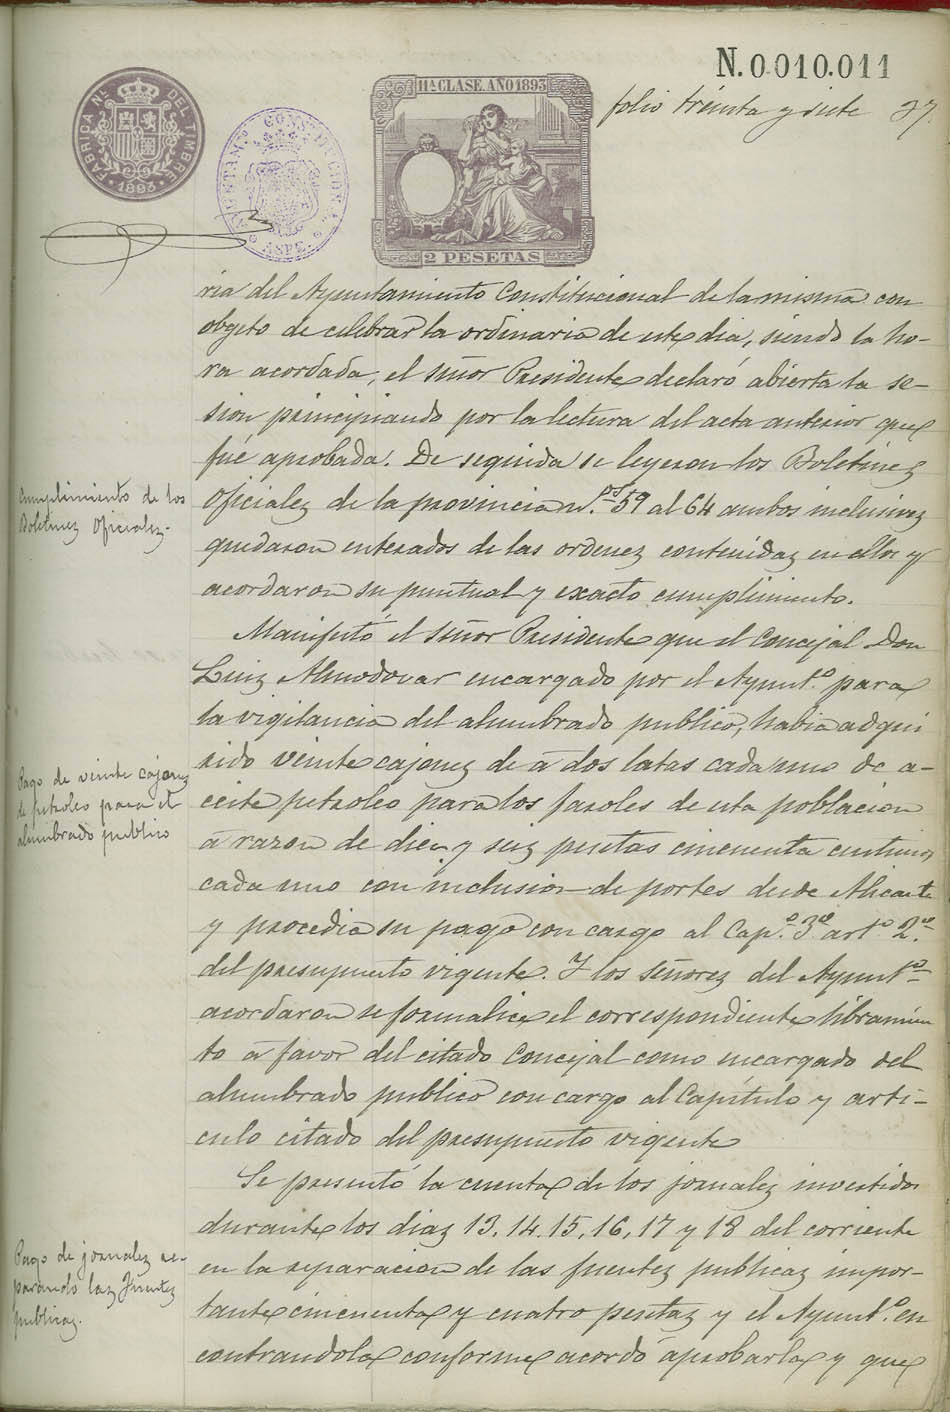 N.0.010.011
11ª CLASE. AÑO 1893
FABRICA NL. DEL TIMBRE
1893
AYUNTAM.º CONSTITUCIONAL
ASPE
2 PESETAS
folio treinta y siete 37.
ria del Ayuntamiento Constitucional de la misma con
obgeto de celebrar la ordinaria de este dia, siendo la ho-
ra acordada, el señor Presidente declaró abierta la se-
sion principiando por la lectura del acta anterior que
fué aprobada. De seguida se leyeron los Boletines
Oficiales de la provincia n.os 59 al 64 ambos inclusives
quedaron enterados de las ordenes contenidas en ellos y
acordaron su puntual y exacto cumplimiento.
Cumplimiento de los
Boletines Oficiales.
Manifestó el señor Presidente que el Concejal Don
Luis Almodovar encargado por el Ayunt.º para
la vigilancia del alumbrado publico, habia adqui
rido veinte cajones de á dos latas cada uno de a-
ceite petroleo para los faroles de esta poblacion
á razon de diez y seis pesetas cincuenta centimos
cada uno con inclusion de portes desde Alicante
y procedia su pago con cargo al Cap.º 3º artº 2.º
del presupuesto vigente. Y los señores del Ayuntº
acordaron se formalice el correspondiente libramien
to á favor del citado Concejal como encargado del
alumbrado publico con cargo al Capítulo y arti-
culo citado del presupuesto vigente
Pago de veinte cajones
de petroleo para el
alumbrado publico
Se presentó la cuenta de los jornales invertidos
durante los dias 13, 14, 15, 16, 17 y 18 del corriente
en la reparacion de las fuentes publicas impor-
tante cincuenta y cuatro pesetas y el Ayunt.º en
contrandola conforme acordó aprobarla y que
Pago de jornales re-
parando las fuentes
publicas.